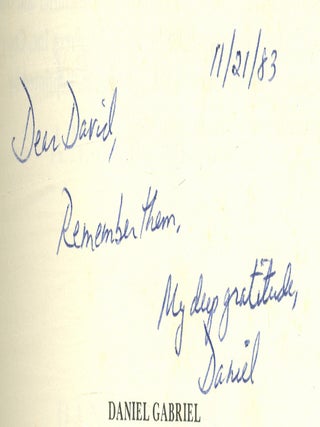 11/21/83
Dear David,
Remember them,
My deep gratitude,
Daniel
DANIEL GABRIEL